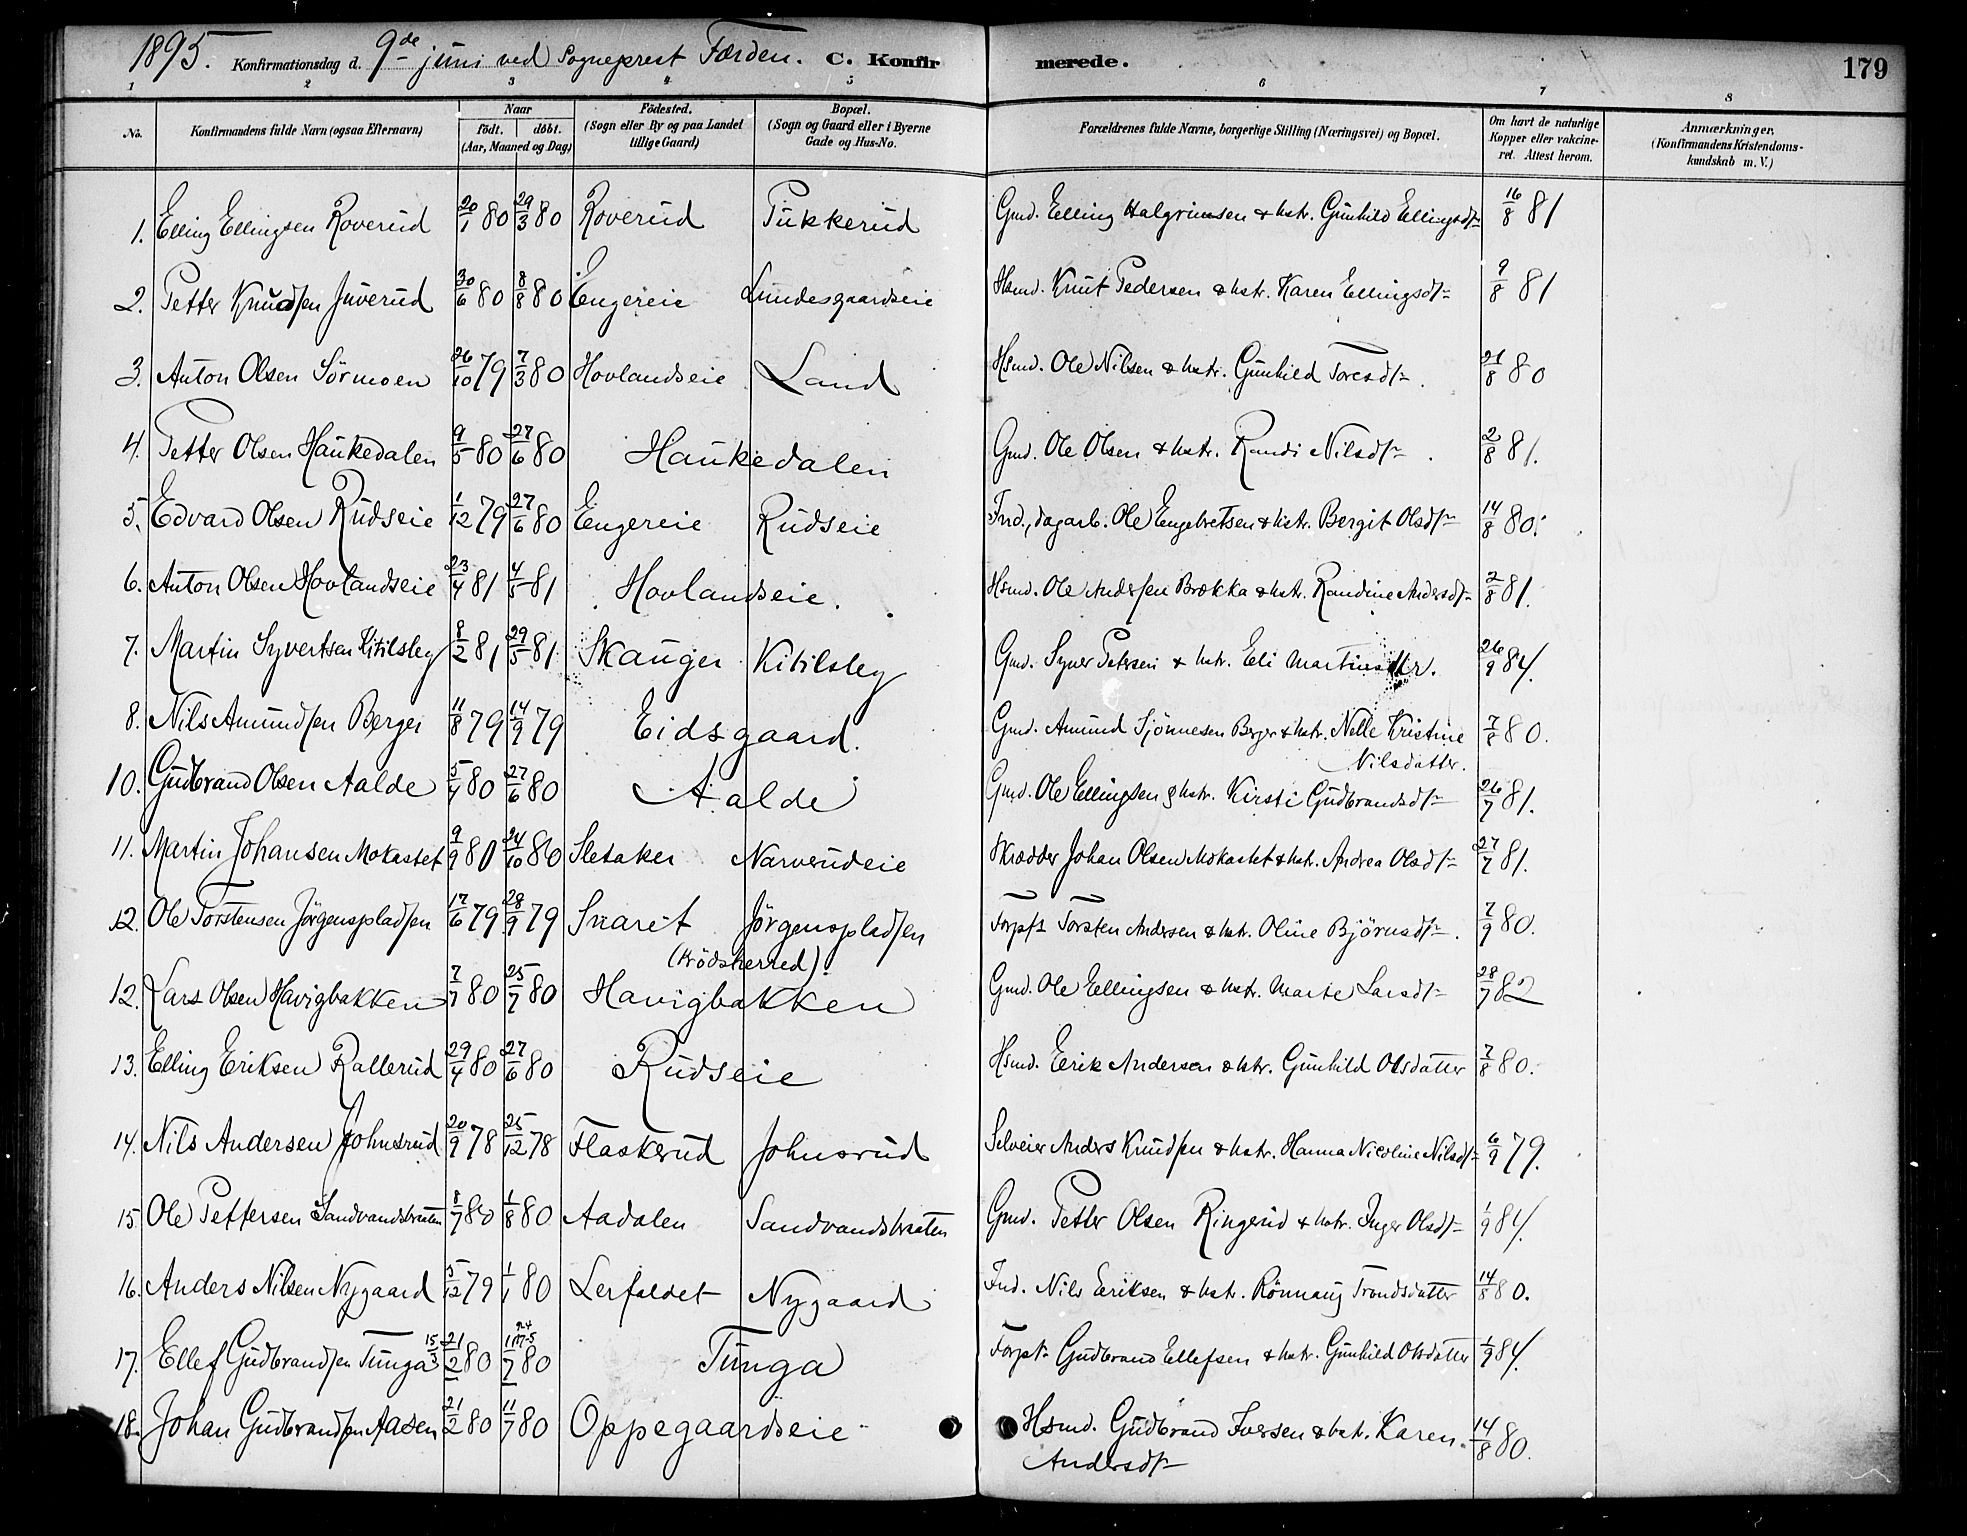 1895. Konfirmationsdag d. 9de juni ved Sogneprest Færden. C. Konfirmerede. 179
1 2 3 4 5 6 7 8
No. Konfirmandens fulde Navn (ogsaa Efternavn) Naar født. døbt. (Aar, Maaned og Dag) Fødested. (Sogn eller By og paa Landet tillige Gaard) Bopæl. (Sogn og Gaard eller i Byerne Gade og Hus-No. Forældrenes fulde Navne, borgerlige Stilling (Næringsvei) og Bopæl. Om havt de naturlige Kopper eller vakcineret. Attest herom. Anmærkninger. (Konfirmandens Kristendomskundskab m. V.)
1. Elling Ellingsen Roverud 20/1 80 29/3 80 Roverud Pukkerud Gmd. Elling Halgrimsen & hstr. Gunhild Ellingsdtr 16/8 81
2. Petter Knudsen Juverud 30/6 80 8/8 80 Engereie Lundesgaardseie Hsmd. Knut Pedersen & hstr. Karen Ellingsdtr 9/8 81
3. Anton Olsen Sørmoen 26/10 79 7/3 80 Hovlandseie Land Hsmd. Ole Nilsen & hstr. Gunhild Toresdtr. 21/8 80
4. Petter Olsen Haukedalen 9/5 80 27/6 80 Haukedalen Gmd. Ole Olsen & hstr. Randi Nilsdtr. 2/8 81.
5. Edvard Olsen Rudseie 1/12 79 27/6 80 Engereie Rudseie Ind., dagarb. Ole Engebretsen & hstr. Bergit Olsdtr 14/8 80.
6. Anton Olsen Hovlandseie 23/4 81 4/5 81 Hovlandseie. Hsmd. Ole Andersen Brækka & hstr. Randine Andersdtr 2/8 81.
7. Martin Syvertsen Kitilsby 8/2 81 29/5 81 Skauger Kitilsby Gmd. Syver Petersen & hstr. Eli Martinsdtr. 26/9 84.
8. Nils Amundsen Berger 11/8 79 14/9 79 Eidsgaard. Gmd. Amund Sjønnesen Berger & hstr. Nelle Kristine Nilsdatter. 7/8 80.
10. Gudbrand Olsen Aalde 5/4 80 27/6 80 Aalde Gmd. Ole Ellingsen & hstr. Kirsti Gudbrandsdtr 26/7 81.
11. Martin Johansen Mokastet 9/9 80 24/10 80 Sletaker Narverudeie Skrædder Johan Olsen Mokastet & hstr. Andrea Olsdtr 27/7 81.
12. Ole Torstensen Jørgenspladsen 17/6 79 28/9 79 Snaret (Krødsherred). Jørgenspladsen Forpt. Torsten Andersen & hstr. Oline Bjørnsdtr. 7/9 80.
12. Lars Olsen Havigbakken 7/7 80 25/7 80 Havigbakken Gmd. Ole Ellingsen & hstr. Marte Larsdtr 28/7 82
13. Elling Eriksen Rallerud 29/4 80 27/6 80 Rudseie Hsmd. Eerik Andersen & hstr. Gunhild Olsdatter 7/8 80.
14. Nils Andersen Johnsrud 20/9 78 25/12 78 Flaskerud Johnsrud Selveier Anders Knudsen & hstr. Hanna Nicoline Nilsdtr 6/9 79.
15. Ole Pettersen Sandvandsbraaten 8/7 80 1/8 80 Aadalen Sandvandsbraaten Gmd. Petter Olsen Ringerud & hstr. Inger Olsdtr 1/9 84.
16. Anders Nilsen Nygaard 5/12 79 1/1 80 Lerfaldet Nygaard Ind. Nils Eeriksen & hstr. Rønnaug Trondsdatter 14/8 80.
17. Ellef Gudbrandsen Tunga 15/3 21/2 80 /7 80 Tunga Forpt. Gudbrand Ellefsen & hstr. Gunhild Olsdatter 1/9 84.
18. Johan Gudbrandsen Aasen 21/2 80 11/7 80 Oppegaardseie Hsmd. Gudbrand Iversen & hstr. Karen Andersdtr 14/8 80.